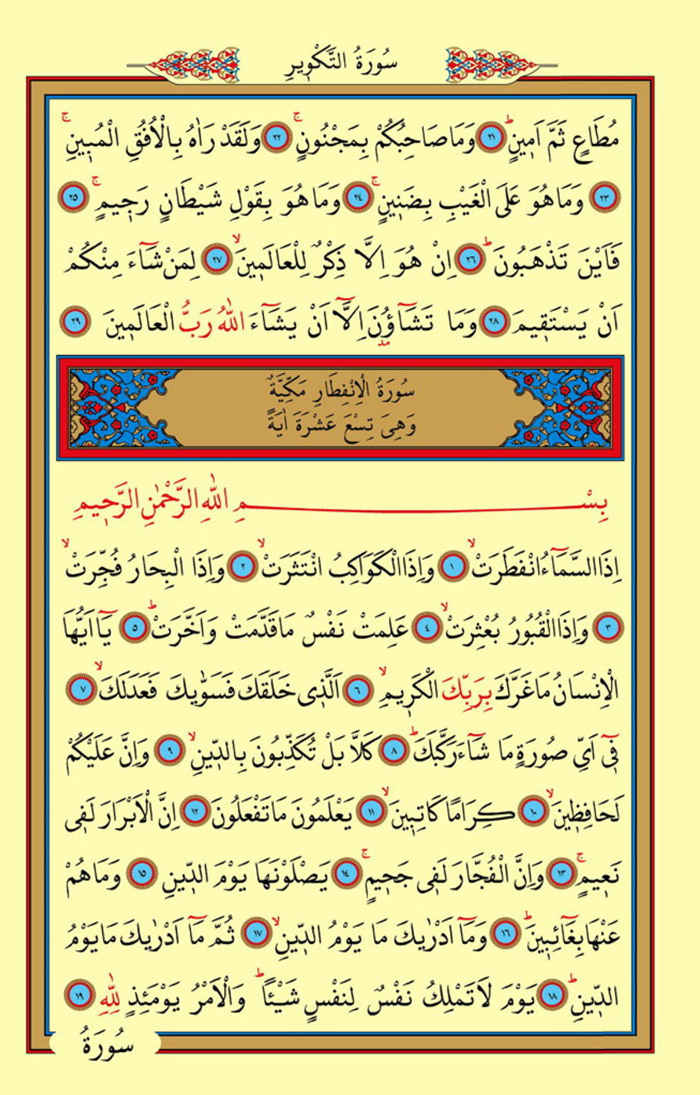 سُورَةُ التَّكْوٖيرِ
مُطَاعٍ ثَمَّ اَمٖينٍۜ ﴿٢١﴾ وَمَا صَاحِبُكُمْ بِمَجْنُونٍۚ ﴿٢٢﴾ وَلَقَدْ رَاٰهُ بِالْاُفُقِ الْمُبٖينِۚ
﴿٢٣﴾ وَمَا هُوَ عَلَى الْغَيْبِ بِضَنٖينٍۚ ﴿٢٤﴾ وَمَا هُوَ بِقَوْلِ شَيْطَانٍ رَجٖيمٍۚ ﴿٢٥﴾
فَاَيْنَ تَذْهَبُونَۜ ﴿٢٦﴾ اِنْ هُوَ اِلَّا ذِكْرٌ لِلْعَالَمٖينَۙ ﴿٢٧﴾ لِمَنْ شَٓاءَ مِنْكُمْ
اَنْ يَسْتَقٖيمَۜ ﴿٢٨﴾ وَمَا تَشَٓاؤُ۫نَ اِلَّٓا اَنْ يَشَٓاءَ اللّٰهُ رَبُّ الْعَالَمٖينَ ﴿٢٩﴾
سُورَةُ الْاِنْفِطَارِ مَكِّيَّةٌ
وَهِىَ تِسْعَ عَشْرَةَ اٰيَةً
بِسْمِ اللّٰهِ الرَّحْمٰنِ الرَّحٖيمِ
اِذَا السَّمَٓاءُ انْفَطَرَتْۙ ﴿١﴾ وَاِذَا الْكَوَاكِبُ انْتَثَرَتْۙ ﴿٢﴾ وَاِذَا الْبِحَارُ فُجِّرَتْۙ
﴿٣﴾ وَاِذَا الْقُبُورُ بُعْثِرَتْۙ ﴿٤﴾ عَلِمَتْ نَفْسٌ مَا قَدَّمَتْ وَاَخَّرَتْۜ ﴿٥﴾ يَٓا اَيُّهَا
الْاِنْسَانُ مَا غَرَّكَ بِرَبِّكَ الْكَرٖيمِۙ ﴿٦﴾ اَلَّذٖى خَلَقَكَ فَسَوّٰيكَ فَعَدَلَكَۙ ﴿٧﴾
فٖٓى اَىِّ صُورَةٍ مَا شَٓاءَ رَكَّبَكَۜ ﴿٨﴾ كَلَّا بَلْ تُكَذِّبُونَ بِالدّٖينِۙ ﴿٩﴾ وَاِنَّ عَلَيْكُمْ
لَحَافِظٖينَۙ ﴿١٠﴾ كِرَامًا كَاتِبٖينَۙ ﴿١١﴾ يَعْلَمُونَ مَا تَفْعَلُونَ ﴿١٢﴾ اِنَّ الْاَبْرَارَ لَفٖى
نَعٖيمٍۚ ﴿١٣﴾ وَاِنَّ الْفُجَّارَ لَفٖى جَحٖيمٍۚ ﴿١٤﴾ يَصْلَوْنَهَا يَوْمَ الدّٖينِ ﴿١٥﴾ وَمَا هُمْ
عَنْهَا بِغَٓائِبٖينَۜ ﴿١٦﴾ وَمَٓا اَدْرٰيكَ مَا يَوْمُ الدّٖينِۙ ﴿١٧﴾ ثُمَّ مَٓا اَدْرٰيكَ مَا يَوْمُ
الدّٖينِۜ ﴿١٨﴾ يَوْمَ لَا تَمْلِكُ نَفْسٌ لِنَفْسٍ شَيْـًٔاۜ وَالْاَمْرُ يَوْمَئِذٍ لِلّٰهِ ﴿١٩﴾
سُورَةُ